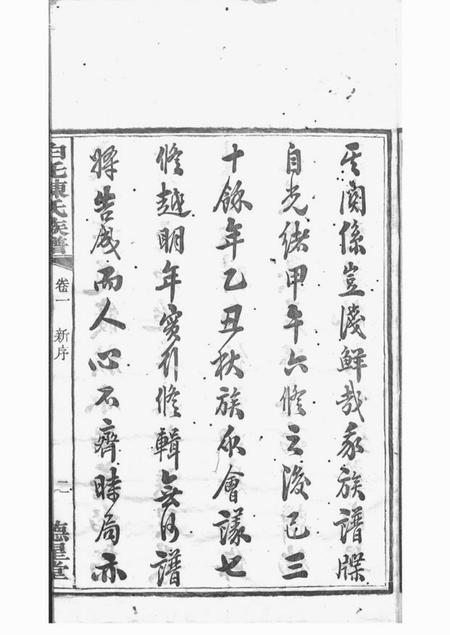 其關係豈淺鮮哉我族譜牒
自光緒甲午六修之後已三
十餘年乙丑秋族众會議七
修越明年實行修輯無何譜
將告成而人心不齊時局亦
白毛陳氏族譜
卷一 新序
二
德星堂